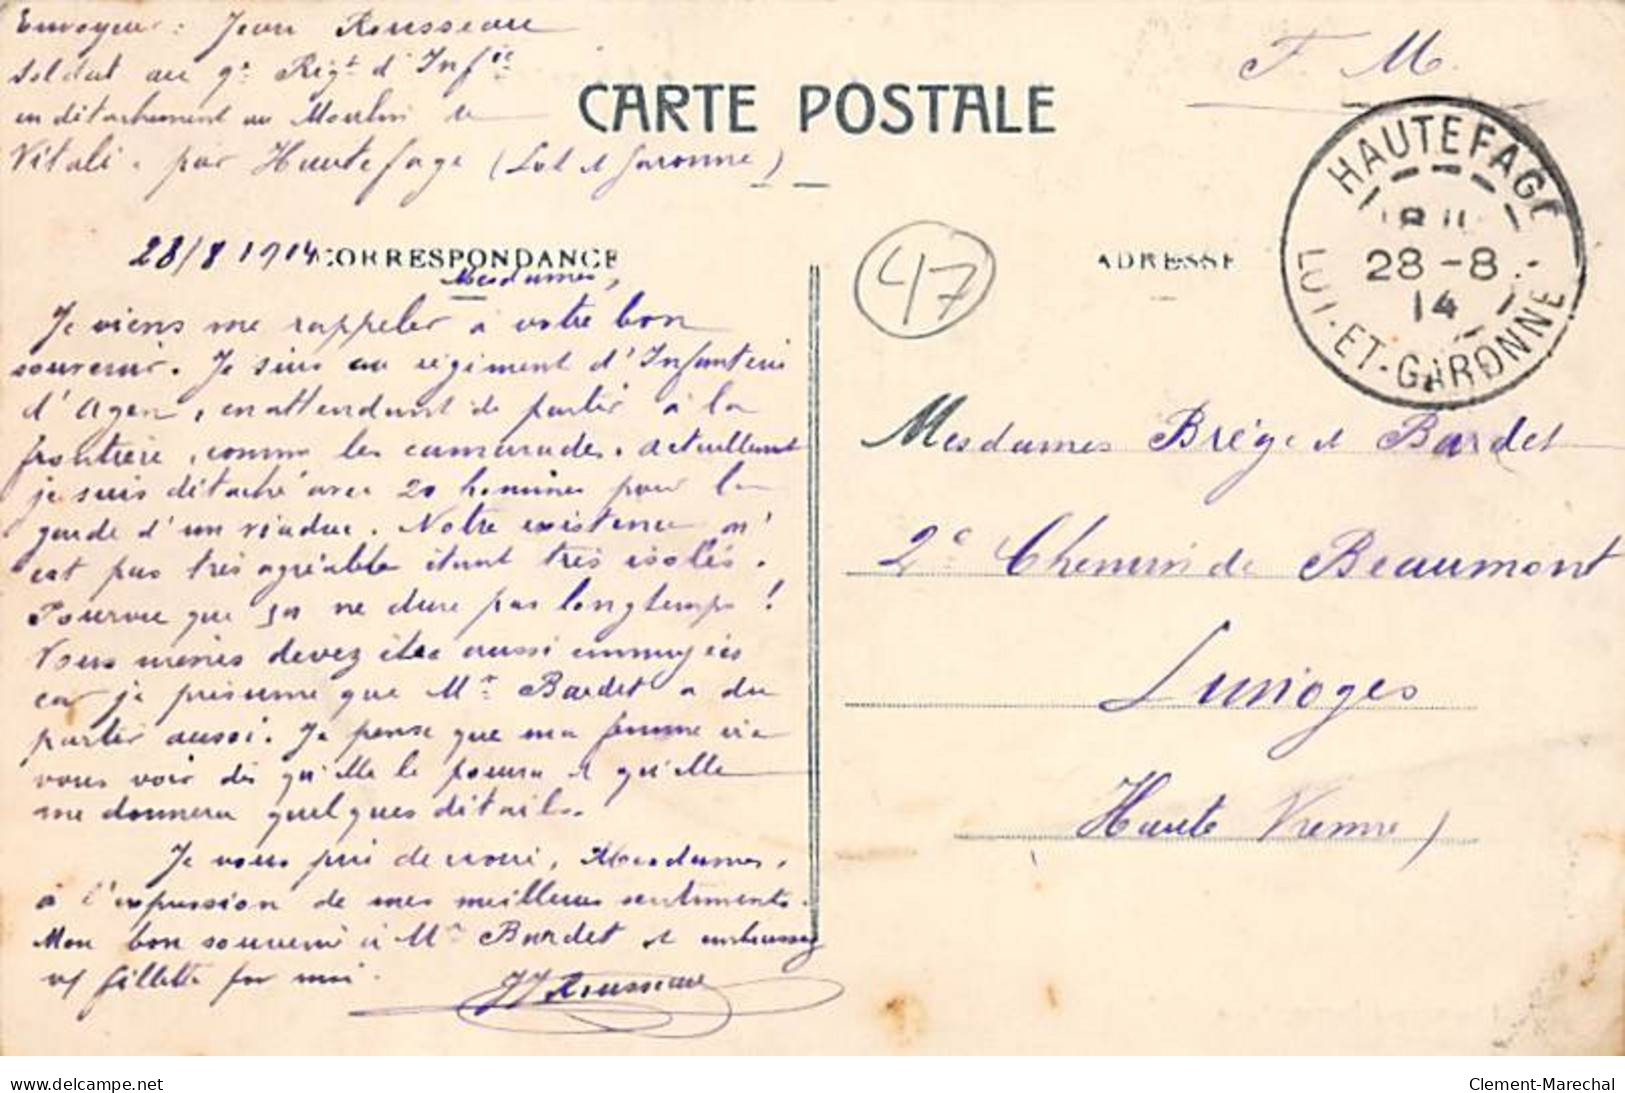 Envoyeur : Jean Rousseau
Soldat au 9e Régt d'Infie
en détachement au Moulin de
Vitali. par Hautefage (Lot et Garonne)
F. M.
CARTE POSTALE
HAUTEFAGE
28 -8
14
LOT-ET-GARONNE
28/8 1914 CORRESPONDANCE
ADRESSE
47
Mesdames,
Je viens me rappeler à votre bon
souvenir. Je suis au régiment d'Infanterie
d'Agen, en attendant de partir à la
frontière, comme les camarades. Actuellement
je suis détaché avec 20 hommes pour la
garde d'un viaduc. Notre existence n'
est pas très agréable étant très isolés.
Pourvu que ça ne dure pas longtemps !
Vous mêmes devez être aussi ennuyées
car je présume que Mr Bardet a du
partir aussi. Je pense que ma femme ira
vous voir dès qu'elle le pourra et qu'elle
me donnera quelques détails.
Je vous prie de croire, Mesdames,
à l'expression de mes meilleurs sentiments.
Mon bon souvenir à Mr Bardet et embrassez
vs fillette pour moi.
JRousseau
Mesdames Brége et Bardet
2e Chemin de Beaumont
Limoges
Haute Vienne)
delcampe.net
Clement-Marechal